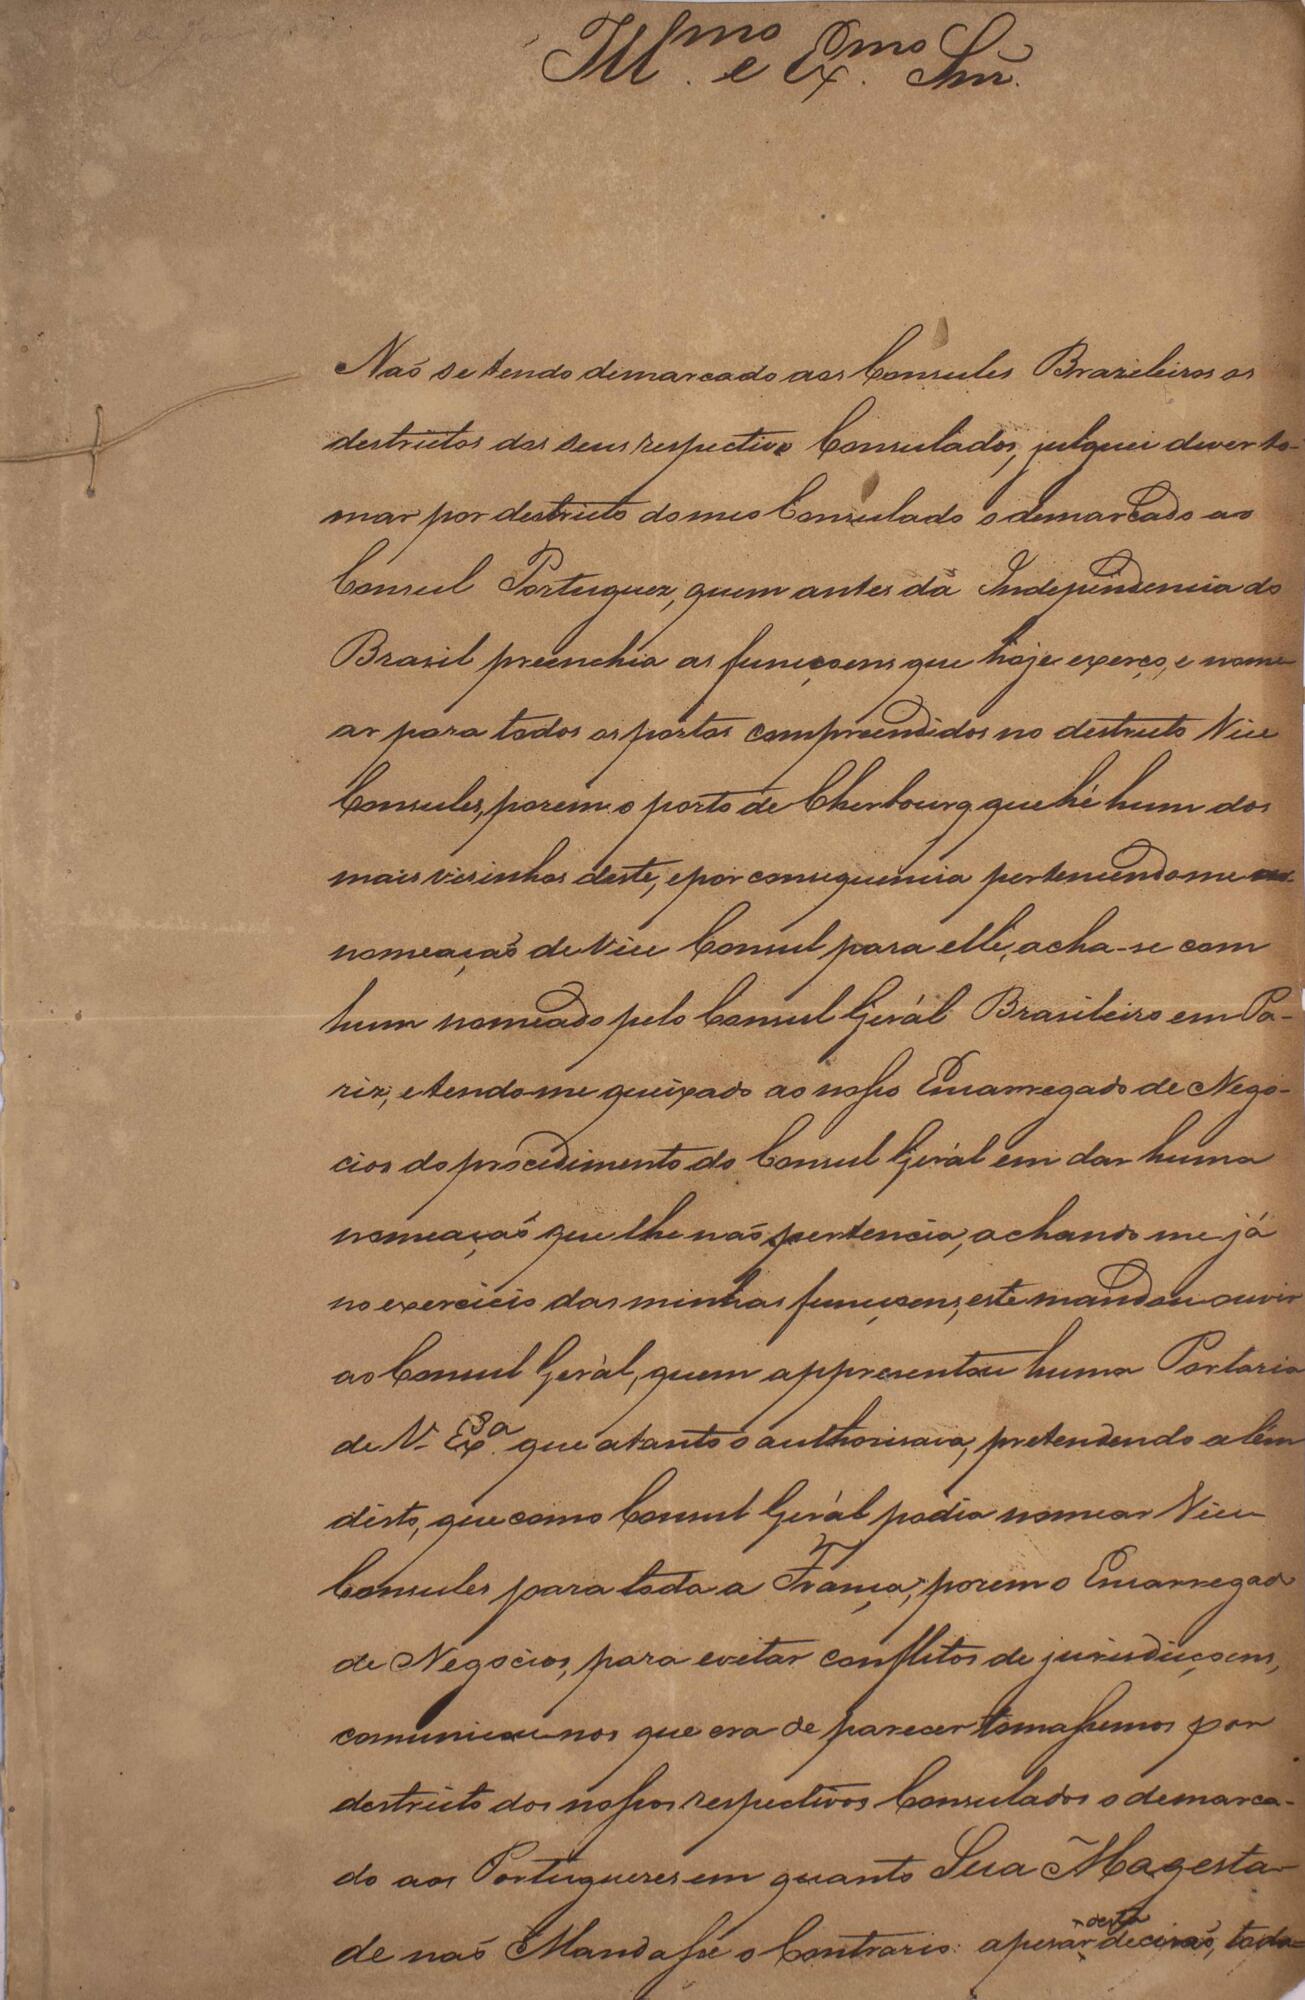 Ill.mo e Ex.mo Snr.
Naõ se tendo demarcado aos Consules Brazileiros os
destrictos dos seus respectivos Consulados, julguei dever to-
mar por destricto do meo Consulado o demarcado ao
Consul Portuguez, quem antes da Independencia do
Brasil preenchia as funçoens que hoje exerço, e nome-
ar para todos os portos comprendidos no destricto Vice
Consules, porem o porto de Cherbourg que hé hum dos
mais visinhos deste, e por consequencia pertencendo me
nomeaçaõ de Vice Consul para elle, acha-se com
hum nomeado pelo Consul Gerál Brasileiro em Pa-
riz, e tendo-me queixado ao nosso Encarregado de Nego-
cios do procedimento do Consul Gerál em dar huma
nomeaçaõ que lhe naõ pertencia, achando me já
no exercicio das minhas funçoens, este mandou ouvir
ao Consul Gerál, quem appresentou huma Portaria
de V. Ex.a que a tanto o authorisava, pretendendo alem
disto, que como Consul Gerál podia nomear Vice
Consules para toda a França; porem o Encarregado
de Negocios, para evitar conflitos de jurisdicçoens,
comunicou nos que era de parecer tomassemos por
destricto dos nossos respectivos Consulados o demarca-
do aos Portuguezes em quanto Sua Magesta-
de naõ Mandasse o Contrario: apesar desta decisaõ, toda-